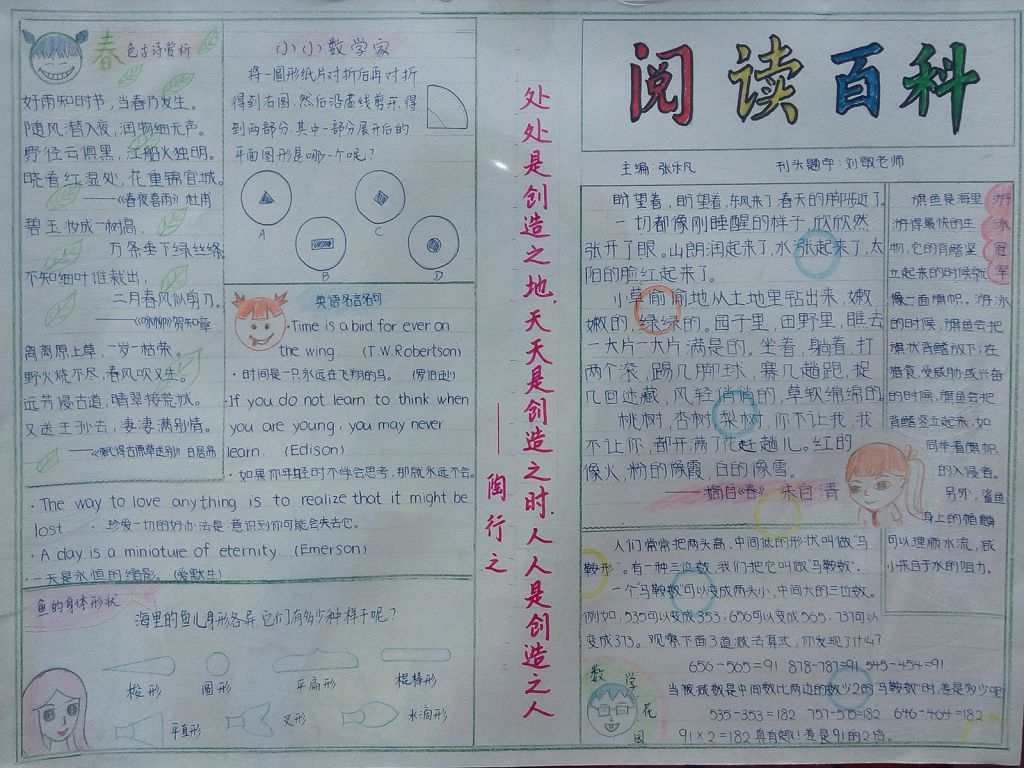 春色古诗赏析
好雨知时书，当春乃发生。
随风潜入夜，润物细无声。
野径云俱黑，江船火独明。
晓看红湿处，花重锦官城。
——《春夜喜雨》杜甫
碧玉妆成一树高，
万条垂下绿丝绦
不知细叶谁裁出，
二月春风似剪刀。
——《咏柳》贺知章
离离原上草，一岁一枯荣。
野火烧不尽，春风吹又生。
远芳侵古道，晴翠接荒城。
又送王孙去，凄凄满别情。
——《赋得古原草送别》白居易
小小数学家
将一圆形纸片对折后再对折
得到右图，然后沿虚线剪开，得
到两部分，其中一部分展开后的
平面图形是哪一个呢？
A
B
C
D
英语名言名句
·Time is a bird for ever on
the wing. (T.W.Robertson)
·时间是一只永远在飞翔的鸟。（罗伯逊）
·If you do not learn to think when
you are young, you may never
learn. (Edison)
·如果你年轻时不学会思考，那就永远不会。
·The way to love anything is to realize that it might be
lost. ·珍爱一切的好办法是意识到你可能会失去它。
·A day is a miniature of eternity. (Emerson)
·一天是永恒的缩影。（爱默生）
鱼的身体形状
海里的鱼儿身形各异，它们有多少种样子呢？
梭形
圆形
平扁形
棍棒形
平直形
叉形
水滴形
处处是创造之地，天天是创造之时，人人是创造之人
——陶行之
阅读百科
主编：张乐凡
刊头题字：刘敬老师
盼望着，盼望着，东风来了，春天的脚步近了
一切都像刚睡醒的样子，欣欣然
张开了眼。山朗润起来了，水涨起来了，太
阳的脸红起来了。
小草偷偷地从土地里钻出来，嫩
嫩的，绿绿的。园子里，田野里，瞧去
一大片一大片满是的。坐着，躺着，打
两个滚，踢几脚球，赛几趟跑，捉
几回迷藏，风轻悄悄的，草软绵绵的
桃树，杏树，梨树，你不让我，我
不让你，都开满了花赶趟儿。红的
像火，粉的像霞，白的像雪。
——摘自《春》 朱自清
游泳冠军
旗鱼是海里
游得最快的生
物，它的背鳍竖
立起来的时候就
像一面旗帜。游泳
的时候，旗鱼会把
旗状背鳍放下；在
猎食、受威胁或兴奋
的时候，旗鱼会把
背鳍竖立起来，如
同举着旗帜
的入侵者。
另外，鲨鱼
身上的盾鳞
可以理顺水流，减
小来自于水的阻力。
人们常常把两头高、中间低的形状叫做“马
鞍形”。有一种三位数，我们把它叫做“马鞍数”。
一个“马鞍数”可以变成两头小，中间大的三位数。
例如，535可以变成353；656可以变成565，737可以
变成373。观察下面3道减法算式，你发现了什么？
656-565=91 878-787=91 545-454=91
当被减数是中间数比两边的数少2的“马鞍数”时，差是多少呢
535-353=182 757-575=182 646-464=182
91×2=182真有趣！差是91的2倍。
数学花园